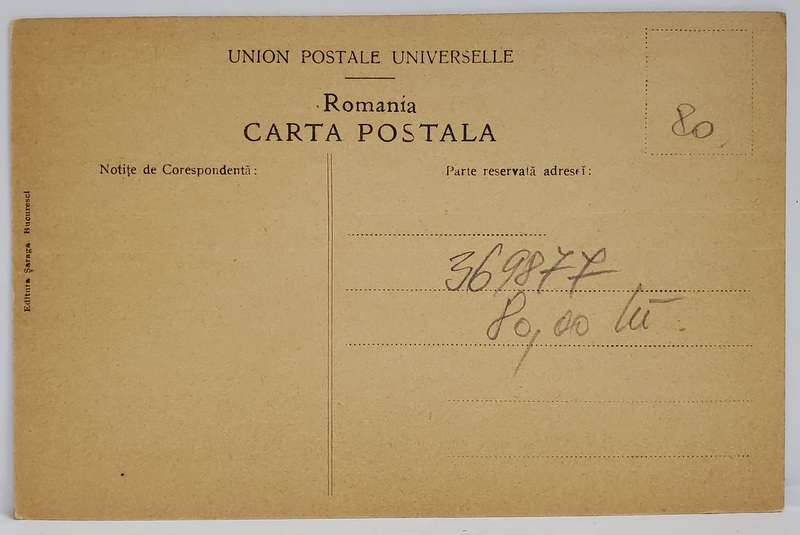 UNION POSTALE UNIVERSELLE
Romania
CARTA POSTALA
80
Notițe de Corespondentă:
Parte reservată adresei:
Editura Șaraga București
369877
80,00 lei